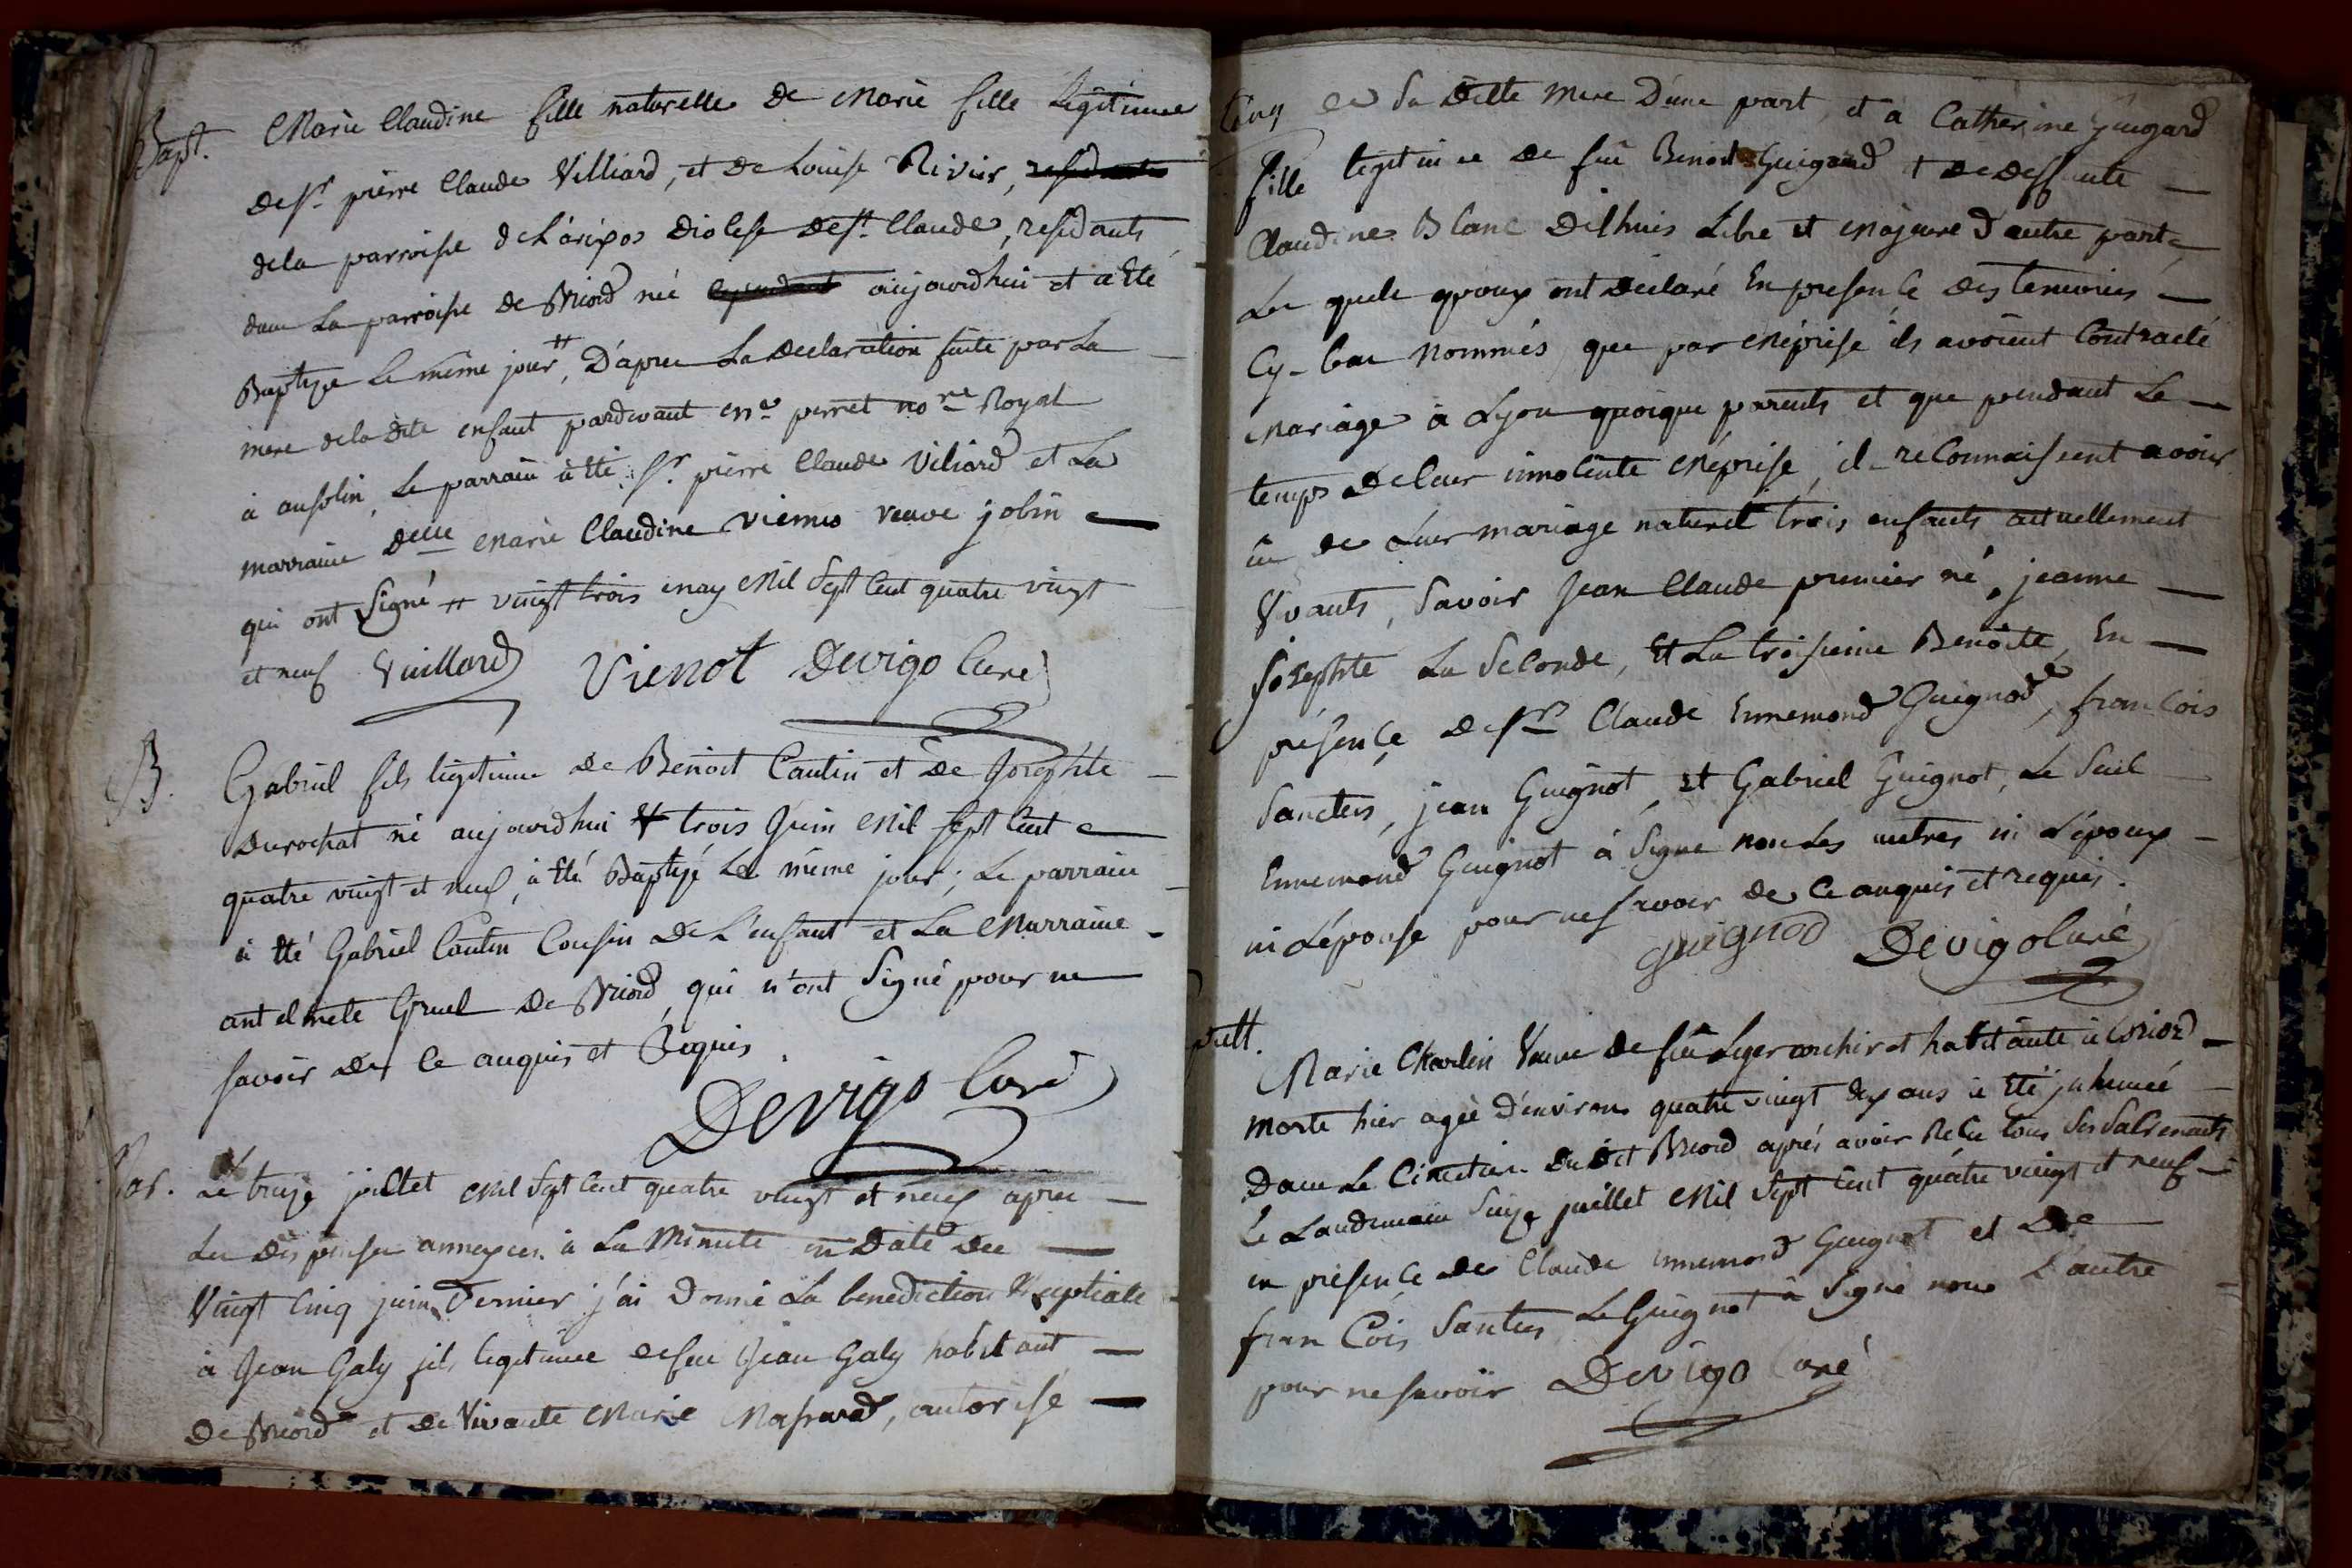 Bapt. Marie Claudine fille naturelle de Marie fille légitime
de Sr. pierre Claude Villiard, et de Louise Rivier,
de la parroisse de diocese de St. Claude, residants
dans La parroisse de Briord né aujourdhui et a eté
Baptize le même jour ++, D'apres La declaration faite par La
mere de la dite enfant pardevant Me. perret nore. Royal
à ansolin, Le parrain à eté Sr. pierre Claude Viliard et La
marraine Delle Marie Claudine viennes veuve jobin
qui ont signé ++ vingt trois may mil sept cent quatre vingt
et neuf Vuillard Vienot Devigo Curé
B. Gabriel fils légitime de Benoit Cantin et de Josephte
Durochat né aujourdhui trois Juin mil sept cent
quatre vingt et neuf, à eté Baptizé Le même jour; Le parrain
à eté Gabriel Cantin Cousin De L'enfant et La Marraine
antelmete Gruel De Briord, qui n'ont Signé pour ne
savoir de ce anquis et Requis.
Devigo Curé
Mar. Le treize juillet mil sept cent quatre vingt et neuf apres
Les dispenses annexées à La Minute en Date du
vingt cinq juin Dernier j'ai Donné La benediction Nuptiale
à Jean Galy fils legitime de feu Jean Galy habitant
De Briord et de vivante Marie, autorisé
de Sa Ditte mere D'une part, et a Catherine Guigard
fille legitime de feu Benoit Guigard + de deffunte
Claudine Blanc Delhuis Libre et Majeure D'autre part
Les quels epoux ont Déclaré En presence des temoins
Cy-bas nommés, que par méprise ils avoient Contracté
mariage à Lyon quoique parents et que pendant Le
temps De leur innocente méprise, ils reconnaissent avoir
eu de Leur mariage naturel trois enfants actuellement
vivants, Savoir Jean Claude premier né, jeanne
Josephte La Seconde, Et La troisieme Benoite, En
présence de Sr. Claude Ennemond Guignod, francois
Sanctus, jean Guignot, et Gabriel Guignot, Le Seul
Ennemond Guignot à Signe non Les autres ni L'époux
ni L'épouse pour ne savoir de Ce anquis et requis.
guignod Devigo Curé
Marie Charlin Veuve de feu Leger habitante à Briord
morte hier agée D'environ quatre vingt dix ans à eté inhumée
Dans Le Cimetiere du dit Briord aprés avoir Reçu tous Ses Sacrements
Le Landemain Seize juillet mil Sept cent quatre vingt et neuf
en présence de Claude Ennemond Guignot et De
fran Cois Santus Le Guignot à Signé non L'autre
pour ne savoir Devigo Curé